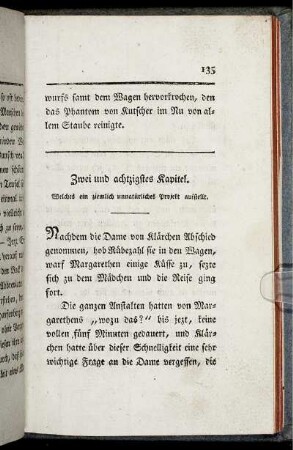 135
wurfs samt dem Wagen hervorkrochen, den
das Phantom von Kutscher im Nu von al-
lem Staube reinigte.
Zwei und achtzigstes Kapitel.
Welches ein ziemlich unnatürliches Projekt aufstellt.
Nachdem die Dame von Klärchen Abschied
genommen, hob Rübezahl sie in den Wagen,
warf Margarethen einige Küsse zu, sezte
sich zu dem Mädchen und die Reise ging
fort.
Die ganzen Anstalten hatten von Mar-
garethens „wozu das?“ bis jezt, keine
vollen fünf Minuten gedauert, und Klär-
chen hatte über dieser Schnelligkeit eine sehr
wichtige Frage an die Dame vergessen, die